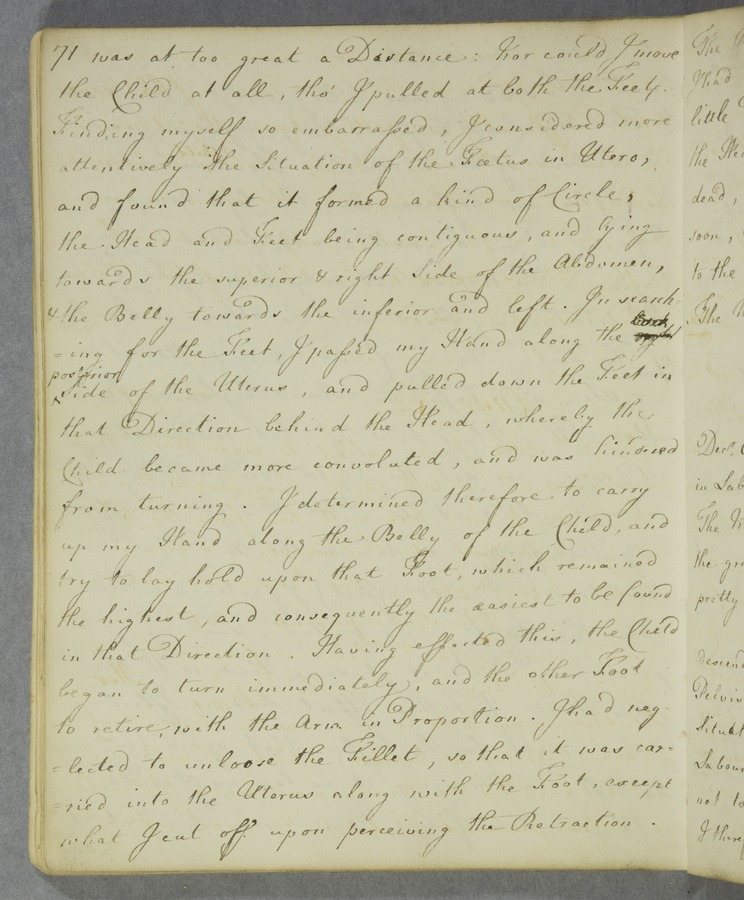 71 was at too great a Distance: Nor could I move
the Child at all, tho' I pulled at both the Feet.
Finding myself so embarrassed, I considered more
attentively the Situation of the Fœtus in Utero,
and found that it formed a kind of Circle,
the Head and Feet being contiguous, and lying
towards the superior & right Side of the Abdomen,
& the Belly towards the inferior and left. In search-
=ing for the Feet, I passed my Hand along the
posterior
Side of the Uterus, and pulled down the Feet in
that Direction behind the Head, whereby the
Child became more convoluted, and was hindered
from turning. I determined therefore to carry
up my Hand along the Belly of the Child, and
try to lay hold upon that Foot, which remained
the highest, and consequently the easiest to be found
in that Direction. Having effected this, the Child
began to turn immediately, and the other Foot
to retire, with the Arm in Proportion. I had neg-
=lected to unloose the Fillet, so that it was car=
=ried into the Uterus along with the Foot, except
what I cut off upon perceiving the Retraction.
The
I had
little
the Hea
dead,
soon,
to the
The
Decr.
in Lab
The
the gre
pretty
descend
Pelvis
Situat
Labour
not to
I there